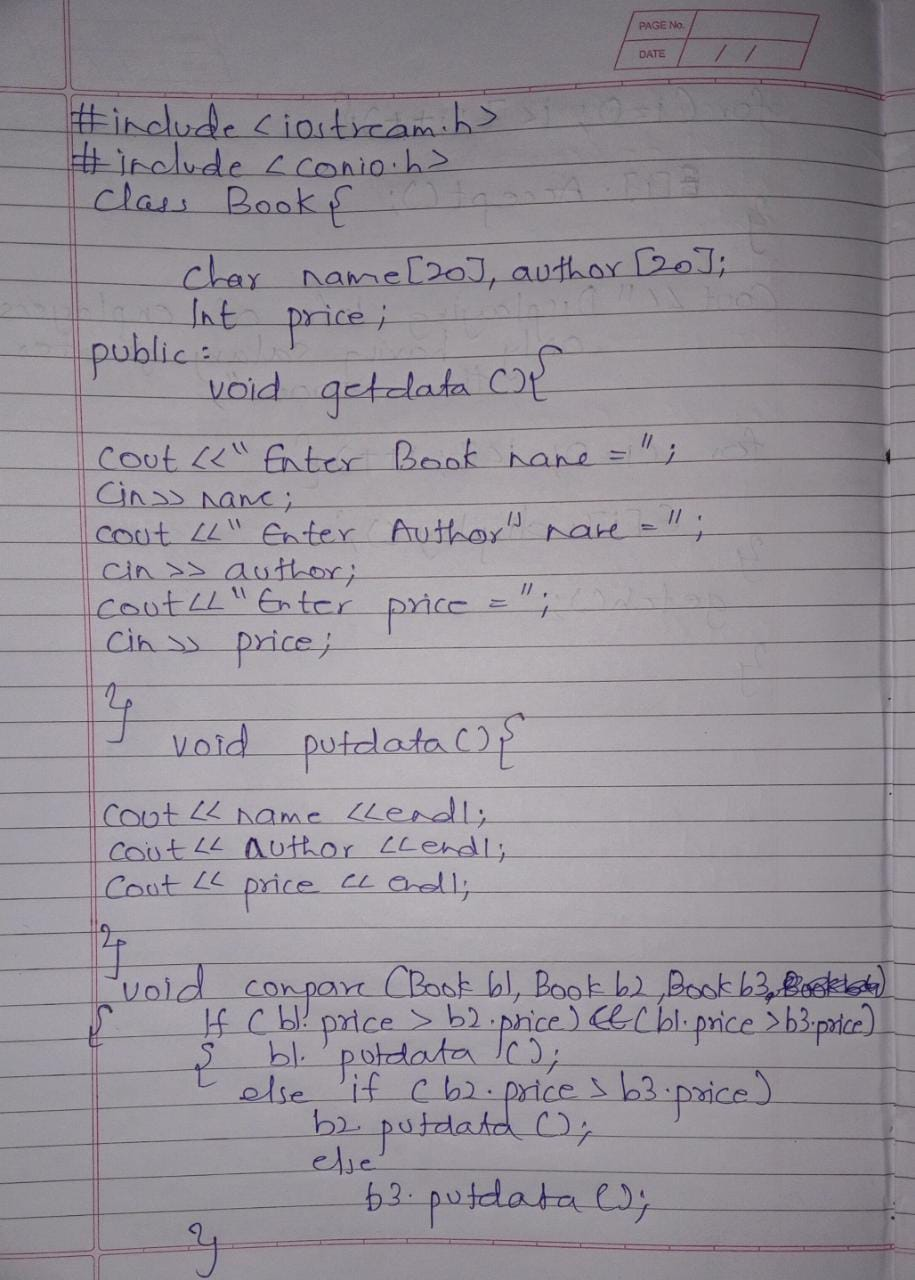 PAGE No.
DATE / /
#include <iostream.h>
#include <conio.h>
Class Book{
Char name[20], author [20];
Int price;
public:
void getdata(){
Cout <<" Enter Book name =";
Cin>> name;
cout <<" Enter Author's name =";
cin >> author;
cout<<" Enter price =";
Cin >> price;
}
void putdata(){
Cout << name <<endl;
cout << author <<endl;
Cout << price << endl;
}
void compare (Book b1, Book b2, Book b3,)
{ If (b1.price > b2.price) && (b1.price >b3.price)
{ b1. putdata ();
else if (b2.price > b3.price)
b2. putdata ();
else
b3. putdata ();
}